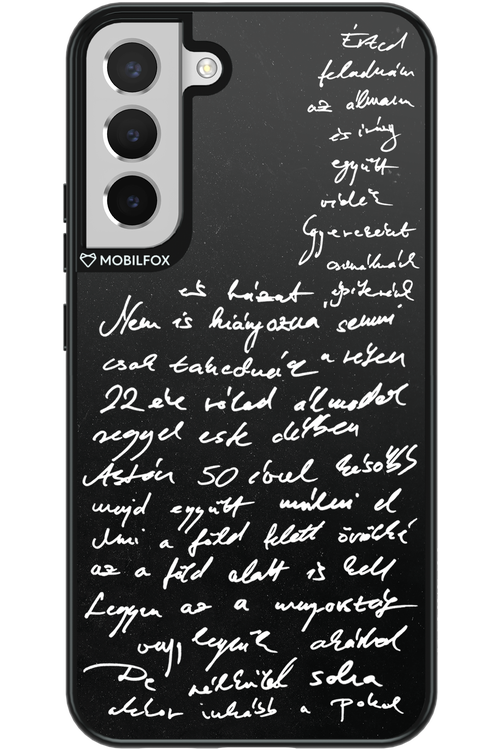 Érted
feladnám
az álmaim
és így
együtt
vidék
Gyereket
csinálnánk
és házat építenénk
Nem is hiányozna semmi
csak takednák a részem
22 éve rólad álmodok
reggel este délben
Aztán 50 évvel később
majd együtt múlni el
Ami a föld felett örökké
az a föld alatt is kell
Legyen az a mennyország
vagy legyünk akárhol
De nélküled soha
akkor inkább a pokol
MOBILFOX